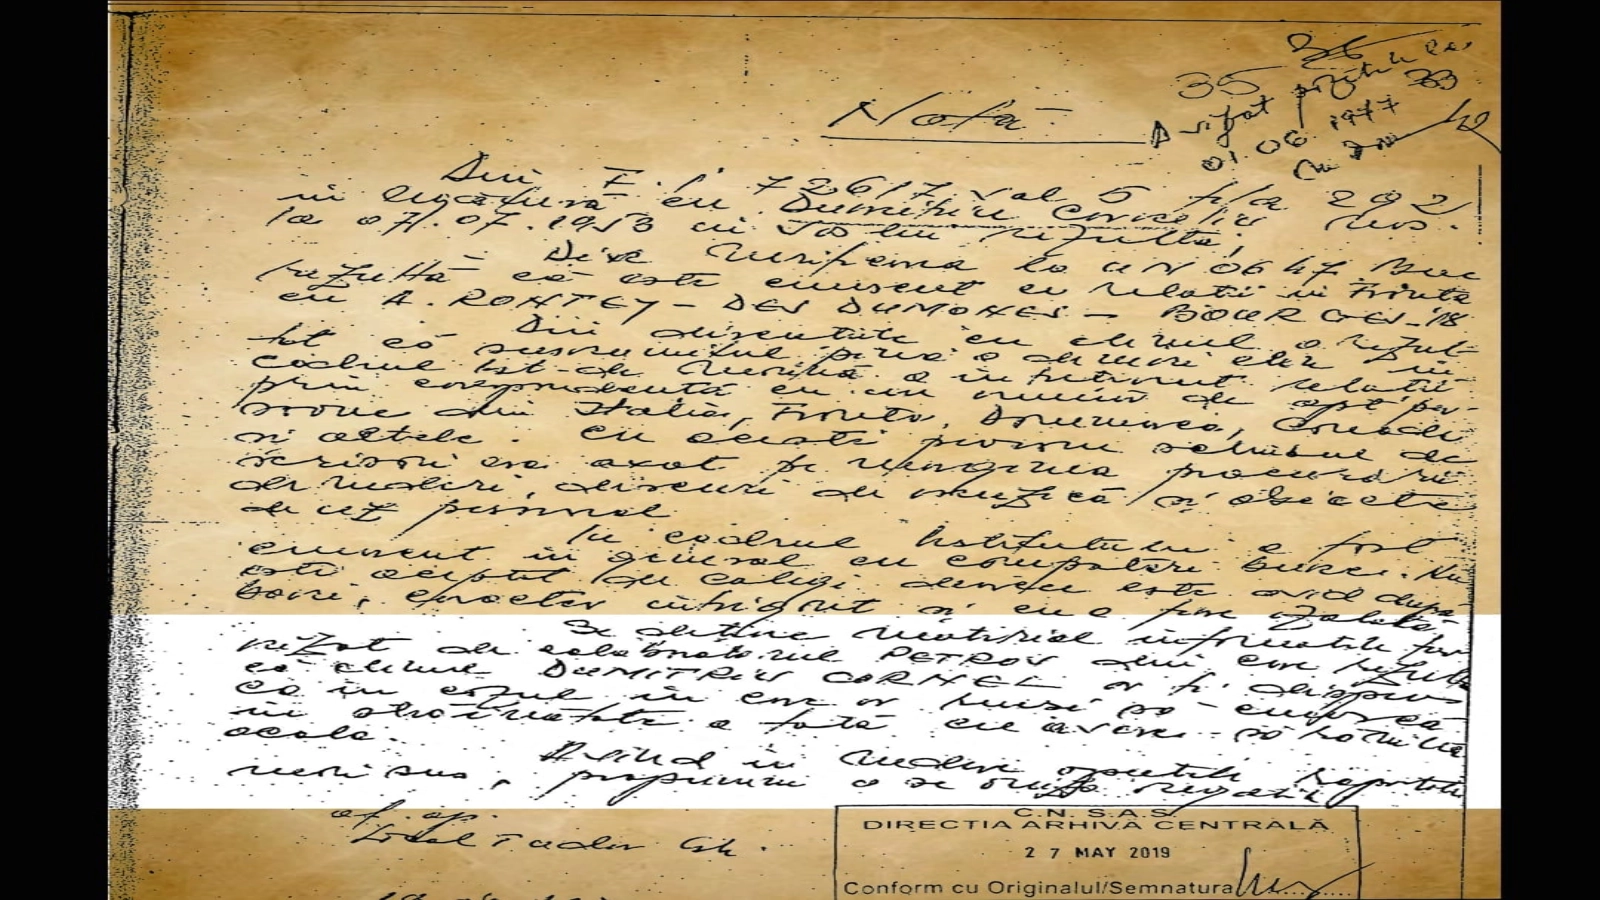 35 36
Avizat
33
01.06.1977
Notă
Din F.i. 72617 vol 5 fila 292
în legătură cu Dumitriu Corneliu născ.
la 07.07.1953 în rezultă,
Din verificarea la UM 0647 Buc
rezultă că este cunoscut cu relatii in Franta
cu A. ROHTEY - DES DUMONES - BOURGES - 18
Din discutiile cu elevul a rezul-
tat că susnumitul pînă a deveni elev în
cadrul a întreținut relatii
prin corespondentă cu un număr de opt per-
soane din Italia, Franta, Danemarca, Canada
si altele. Cu aceste persoane schimbul de
scrisori era axat pe procurării
de vederi, discuri de muzică si obiecte
de uz personal
In cadrul Institutului a fost
cunoscut în general cu comportări bune. Nu
este acceptat de colegi deoarece este avid după
bani, caracter intrigant si cu o fire
Se detine material informativ fur-
nizat de colaboratorul PETROV din care rezulta
că elevul DUMITRIU CORNEL ar fi dispus
ca în cazul în care ar reusi să cunoască
în străinătate o fată cu avere să rămînă
acolo.
Avînd in vedere aspectele raportate
mai sus, propunem a se aviza negativ
of. op.
Tudor Gh.
C.N.S.A.S.
DIRECTIA ARHIVA CENTRALĂ
27 MAY 2019
Conform cu Originalul/Semnatura